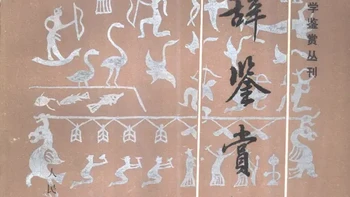 学鉴赏丛刊
辞鉴赏
人民